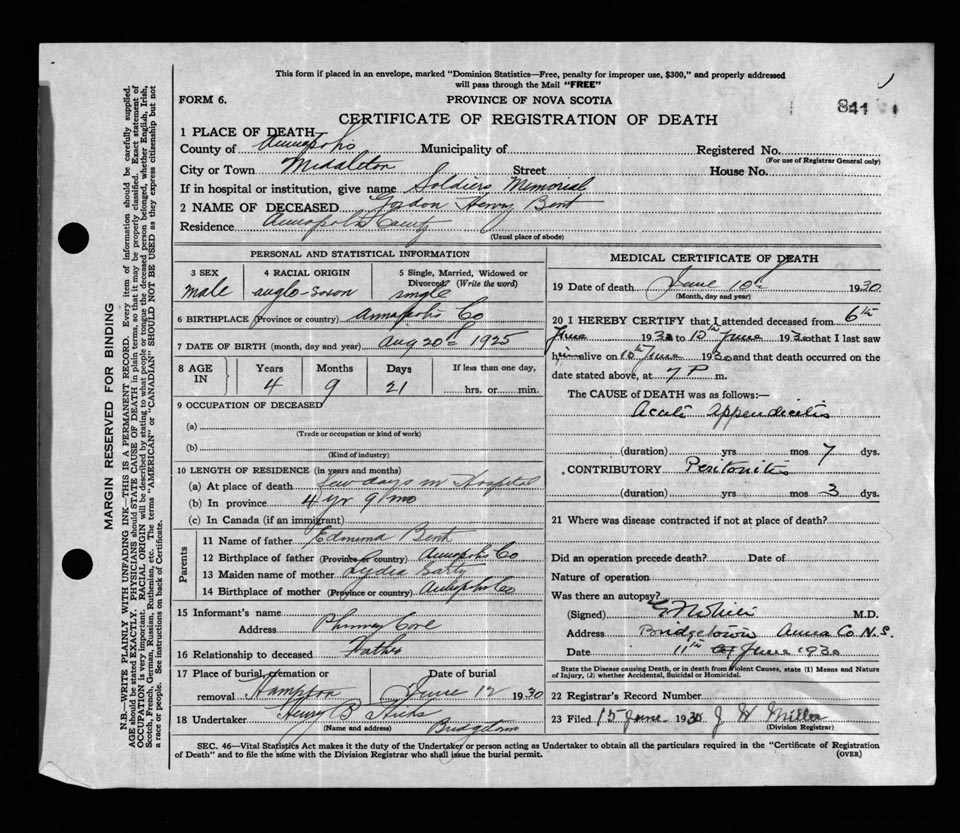 This form if placed in an envelope, marked "Dominion Statistics—Free, penalty for improper use, $300," and properly addressed
will pass through the Mail "FREE"
FORM 6.
PROVINCE OF NOVA SCOTIA
841
CERTIFICATE OF REGISTRATION OF DEATH
1 PLACE OF DEATH
County of Annapolis Municipality of Registered No.
(For use of Registrar General only)
City or Town Middleton Street House No.
If in hospital or institution, give name Soldiers Memorial
2 NAME OF DECEASED Gordon Henry Bent
Residence Annapolis County
(Usual place of abode)
PERSONAL AND STATISTICAL INFORMATION
3 SEX 4 RACIAL ORIGIN 5 Single, Married, Widowed or
Divorced? (Write the word)
male anglo-saxon single
6 BIRTHPLACE (Province or country) Annapolis Co
7 DATE OF BIRTH (month, day and year) Aug 20th 1925
8 AGE IN Years Months Days If less than one day,
4 9 21 hrs. or min.
9 OCCUPATION OF DECEASED
(a)
(Trade or occupation or kind of work)
(b)
(Kind of industry)
10 LENGTH OF RESIDENCE (in years and months)
(a) At place of death few days in Hospital
(b) In province 4 yr 9 mo
(c) In Canada (if an immigrant)
Parents
11 Name of father Bent
12 Birthplace of father (Province or country) Annapolis Co
13 Maiden name of mother Lydia
14 Birthplace of mother (Province or country) Annapolis Co
15 Informant's name
Address Phinney Cove
16 Relationship to deceased Father
17 Place of burial, cremation or Date of burial
removal Hampton June 12 1930
18 Undertaker Henry B Hicks
(Name and address) Bridgetown
MEDICAL CERTIFICATE OF DEATH
19 Date of death June 10th 1930
(Month, day and year)
20 I HEREBY CERTIFY that I attended deceased from 6th
June 1930 to 10th June 1930 that I last saw
him alive on 10th June 1930 and that death occurred on the
date stated above, at 7 P m.
The CAUSE of DEATH was as follows:—
Acute Appendicitis
(duration) yrs mos 7 dys.
CONTRIBUTORY Peritonitis
(duration) yrs mos 3 dys.
21 Where was disease contracted if not at place of death?
Did an operation precede death? Date of
Nature of operation
Was there an autopsy?
(Signed) M.D.
Address Bridgetown Anna Co N.S.
Date 11th of June 1930
State the Disease causing Death, or in death from Violent Causes, state (1) Means and Nature
of Injury, (2) whether Accidental, Suicidal or Homicidal.
22 Registrar's Record Number
23 Filed 15 June 1930 J W Miller
(Division Registrar)
SEC. 46—Vital Statistics Act makes it the duty of the Undertaker or person acting as Undertaker to obtain all the particulars required in the "Certificate of Registration
of Death" and to file the same with the Division Registrar who shall issue the burial permit.
(OVER)
MARGIN RESERVED FOR BINDING
N.B.—WRITE PLAINLY WITH UNFADING INK—THIS IS A PERMANENT RECORD. Every item of information should be carefully supplied.
AGE should be stated EXACTLY. PHYSICIANS should STATE CAUSE OF DEATH in plain terms, so that it may be properly classified. Exact statement of
OCCUPATION is very important. RACIAL ORIGIN will be described by stating to what people or tongue the deceased person belonged, whether English, Irish,
Scotch, French, German, Russian, Ruthenian, etc. The terms "AMERICAN" or "CANADIAN" SHOULD NOT BE USED as they express citizenship but not
a race or people. See instructions on back of Certificate.